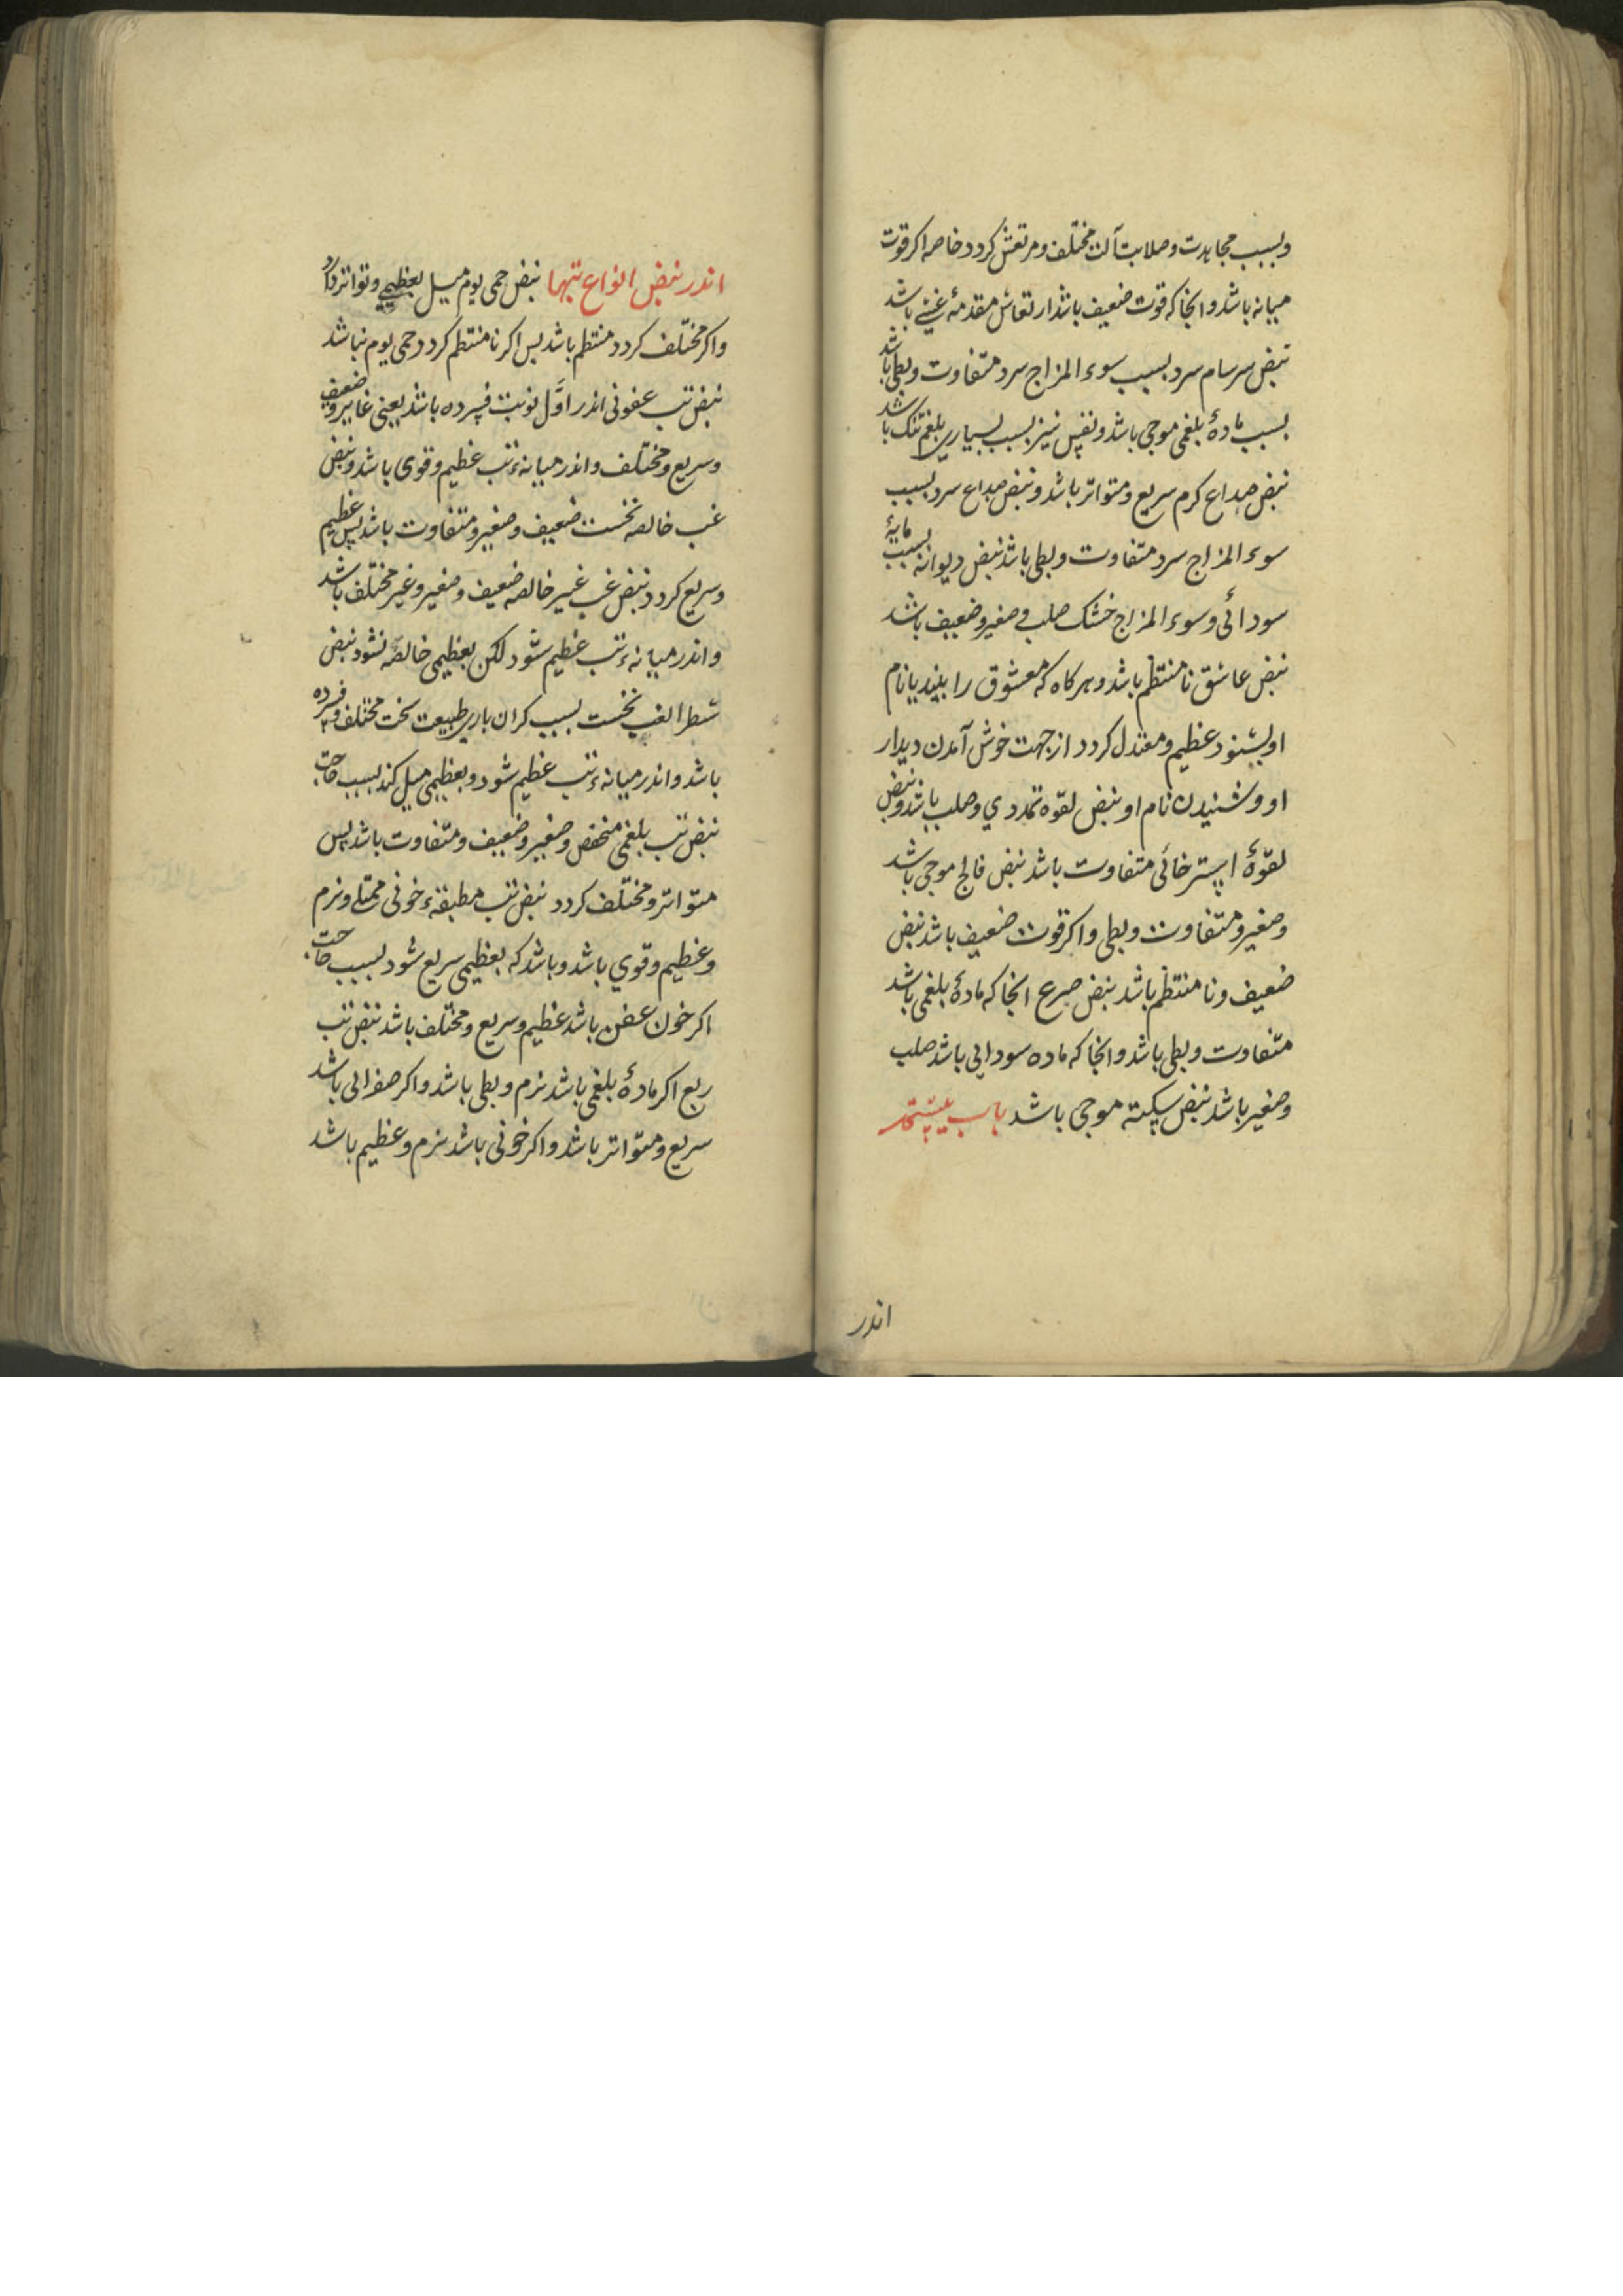 وبسبب مجاهدت وصلابت آلت مختلف ومرتعش کردد خاصه اکر قوت
میانه باشد وانجا که قوت ضعیف باشد ارتعاش مقدمهٔ غشی باشد
نبض سرسام سرد بسبب سوء المزاج سرد متفاوت وبطی باشد
بسبب مادهٔ بلغمی موجی باشد ونفس نیز بسبب بسیاری بلغم تنک باشد
نبض صداع کرم سریع ومتواتر باشد ونبض صداع سرد بسبب
سوء المزاج سرد متفاوت وبطی باشد نبض دیوانه بسبب مایهٔ
سودائی وسوء المزاج خشک صلب وصغیر وضعیف باشد
نبض عاشق نامنتظم باشد وهرکاه که معشوق را بیند یا نام
او بشنود عظیم ومعتدل کردد ازجهت خوش آمدن دیدار
او وشنیدن نام او نبض لقوه تمددی وصلب باشد ونبض
لقوهٔ استرخائی متفاوت باشد نبض فالج موجی باشد
وصغیر ومتفاوت وبطی واکر قوت ضعیف باشد نبض
ضعیف ونامنتظم باشد نبض صرع انجا که مادهٔ بلغمی باشد
متفاوت وبطی باشد وانجا که ماده سودایی باشد صلب
وصغیر باشد نبض سکته موجی باشد باب بیستم
اندر
اندر نبض انواع تبها نبض حمی یوم میل بعظیمی وتواتر دارد
واکر مختلف کردد منتظم باشد بس اکر نامنتظم کردد حمی یوم نباشد
نبض تب عفونی اندر اوَّل نوبت فسرده باشد یعنی غایر وضعیف
وسریع ومختلف واندر میانهٔ تب عظیم وقوی باشد ونبض
غب خالصه نخست ضعیف وصغیر ومتفاوت باشد پس عظیم
وسریع کردد نبض غب غیر خالصه ضعیف وصغیر وغیر مختلف باشد
واندر میانهٔ تب عظیم شود لکن بعظیمی خالصه نشود نبض
شطر الغب نخست بسبب کران باری طبیعت سخت مختلف وفسرده
باشد واندر میانهٔ تب عظیم شود وبعظیمی میل کند بسبب حاجت
نبض تب بلغمی منخفض وصغیر وضعیف ومتفاوت باشد پس
متواتر ومختلف کردد نبض تب مطبقهٔ خونی ممتلی ونرم
وعظیم وقوی باشد وباشد که بعظیمی سریع شود بسبب حاجت
اکر خون عفن باشد عظیم وسریع ومختلف باشد نبض تب
ربع اکر مادهٔ بلغمی باشد نرم وبطی باشد واکر صفرایی باشد
سریع ومتواتر باشد واکر خونی باشد نرم وعظیم باشد